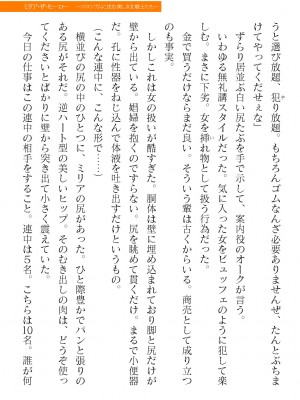 うと選び放題、犯り放題。もちろんゴムなんざ必要ありませんぜ、たんとぶちま
けてやってくだせぇな」
　ずらり居並ぶ白い尻たぶを手で示して、案内役のオークが言う。
　いわゆる無礼講スタイルだった。気に入った女をビュッフェのように犯して楽
しむ。まさに下劣。女を挿れ物として扱う行為だった。
　金で買うだけならまだ良い。そういう輩は古くからいる。商売として成り立つ
のも事実。
　しかしこれは女の扱いが酷すぎた。胴体は壁に埋め込まれており脚と尻だけが
壁から出ている。娼婦を抱くのですらない。尻を眺めて貫くだけ。まるで小便器
だ。孔に性器をねじ込んで体液を吐き出すだけというもの。
（こんな連中に、こんな形で……）
　横並びの尻の中のひとつに、ミリアの尻があった。ひと際豊かでパンと張りの
ある尻がそれだ。逆ハート型の美しいヒップ。そのむき出しの肉は、どうぞ使っ
てくださいとばかりに壁から突き出て小さく震えていた。
　今日の仕事はこの連中の相手をすること。連中は５名。こちらは10名。誰が何